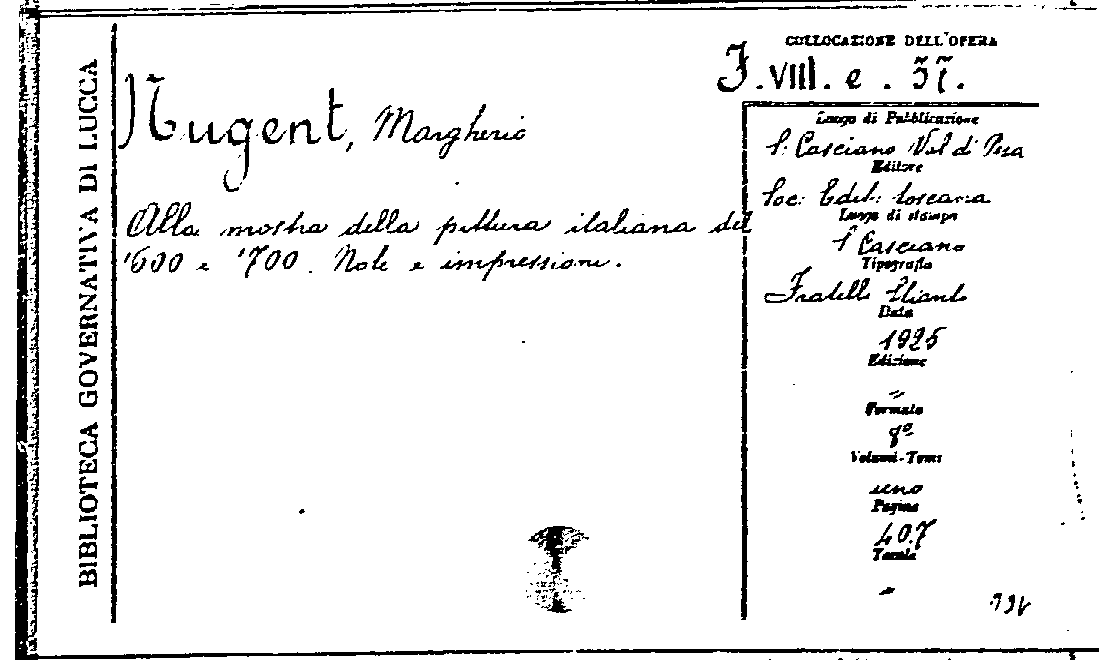 BIBLIOTECA GOVERNATIVA DI LUCCA
Nugent, Margherio
Alla mostra della pittura italiana del
'600 e '700. Note e impressioni.
COLLOCAZIONE DELL'OPERA
F. VIII. e. 57.
Luogo di Pubblicazione
S. Casciano Val di Pesa
Editore
Soc. Edit. toscana
Luogo di stampa
S Casciano
Tipografia
Fratelli Stianti
Data
1925
Edizione
"
Formato
8º
Volumi-Tomi
uno
Pagine
407
Tavole